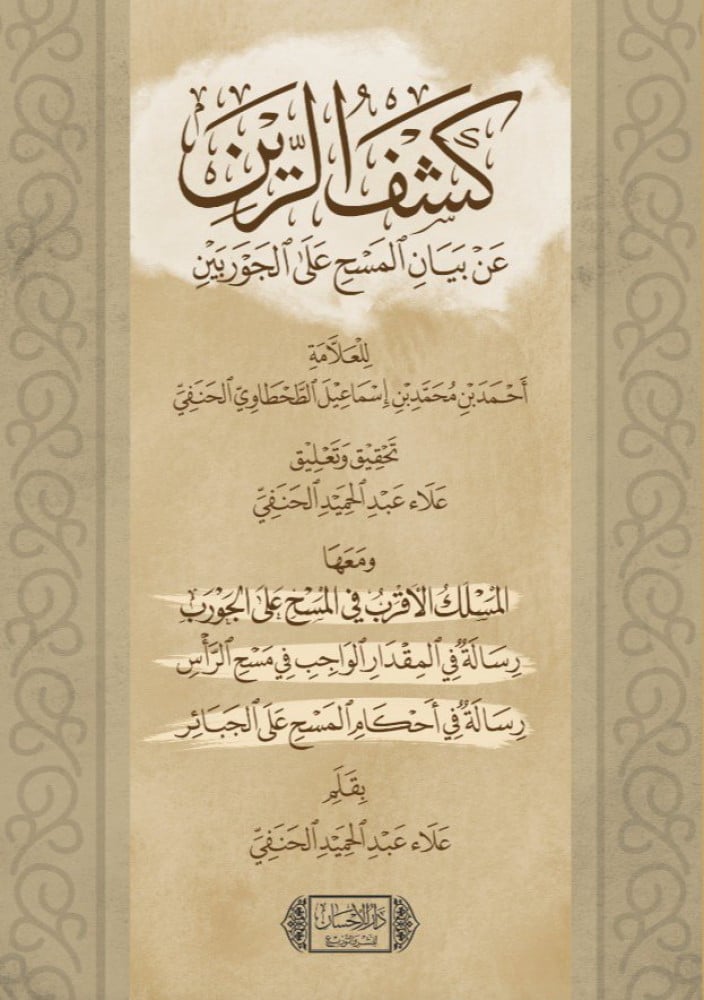 كَشْفُ الرَّيْنِ
عَنْ بَيَانِ ٱلْمَسْحِ عَلَى ٱلْجَوْرَبَيْنِ
لِلْعَلَّامَةِ
أَحْمَدَ بْنِ مُحَمَّدِ بْنِ إِسْمَاعِيْلَ ٱلطَّحْطَاوِيِّ ٱلْحَنَفِيِّ
تَحْقِيْق وَتَعْلِيْق
عَلَاء عَبْدِ ٱلْحَمِيْدِ ٱلْحَنَفِيِّ
وَمَعَهَا
الْمَسْلَكُ الْأَقْرَبُ فِي الْمَسْحِ عَلَى الْجَوْرَبِ
رِسَالَةٌ فِي ٱلْمِقْدَارِ ٱلْوَاجِبِ فِي مَسْحِ ٱلرَّأْسِ
رِسَالَةٌ فِي أَحْكَامِ ٱلْمَسْحِ عَلَى ٱلْجَبَائِر
بِقَلَمِ
عَلَاء عَبْدِ ٱلْحَمِيْدِ ٱلْحَنَفِيِّ
دَارُ الْإِحْسَانِ
للنشر والتوزيع